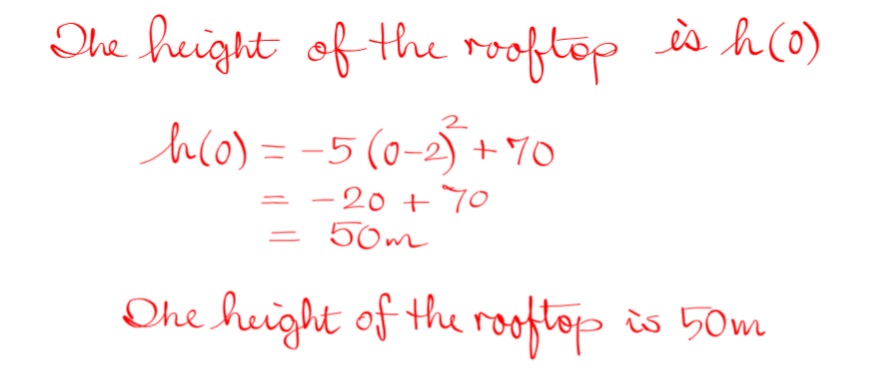 The height of the rooftop is h(0)
h(0) = -5(0-2)² + 70
= -20 + 70
= 50m
The height of the rooftop is 50m